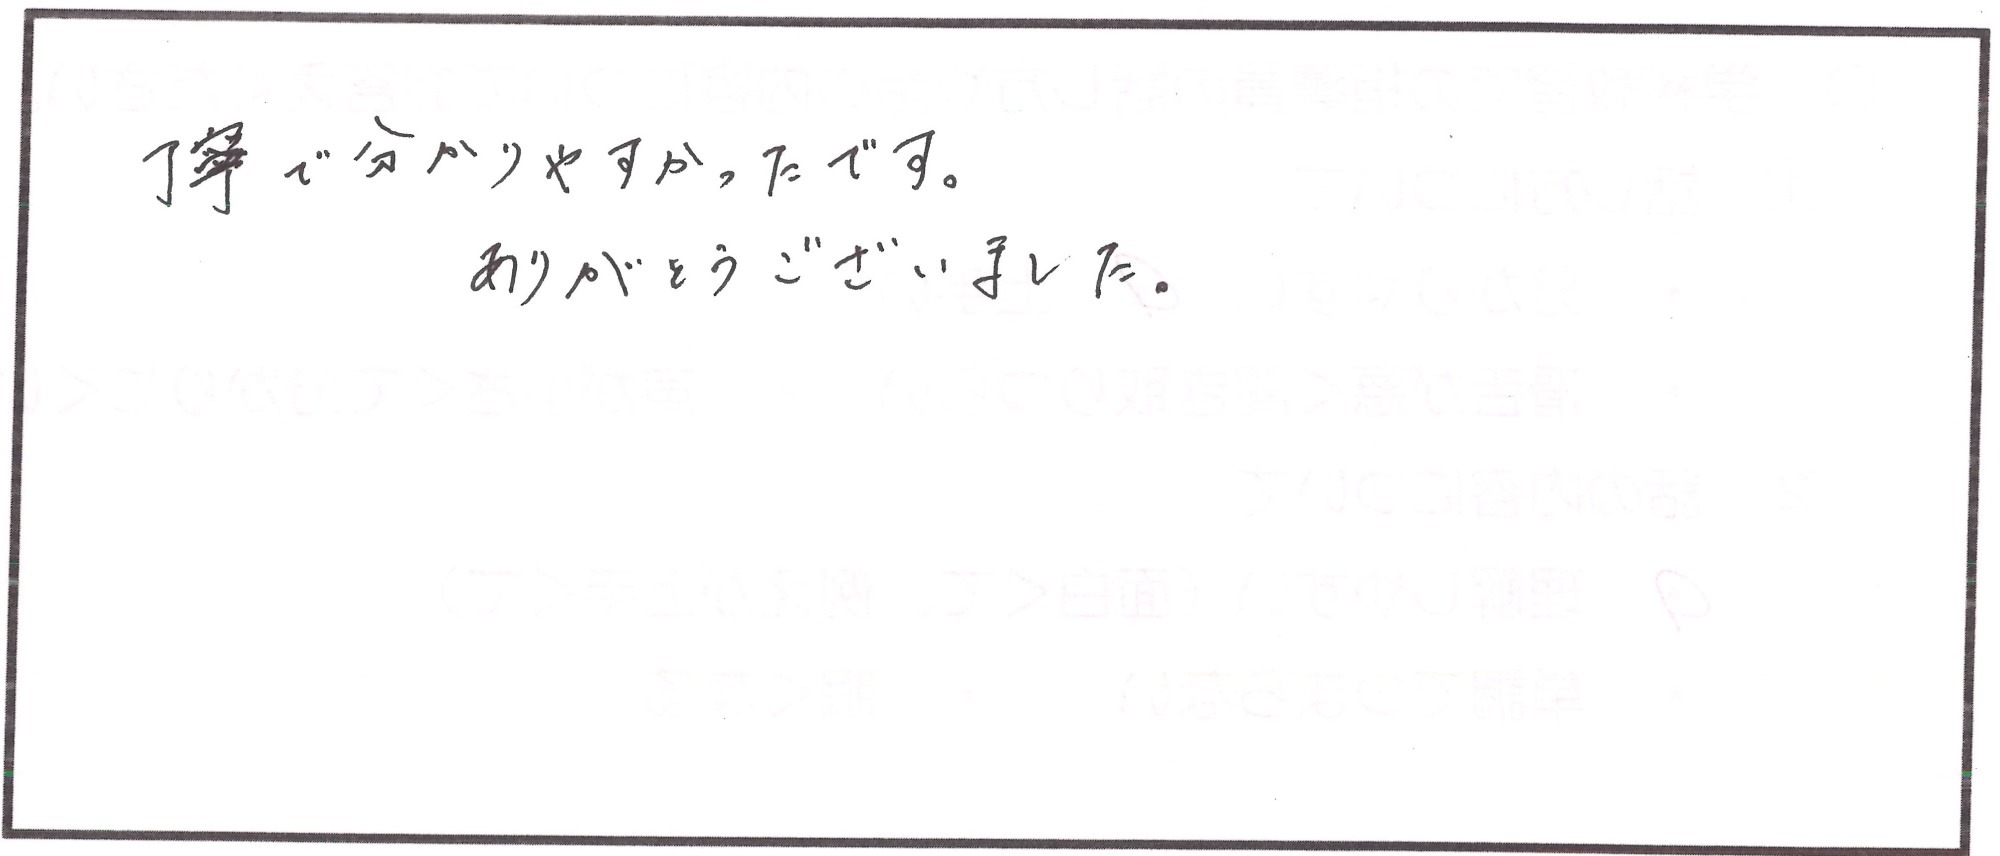 丁寧で分かりやすかったです。
ありがとうございました。